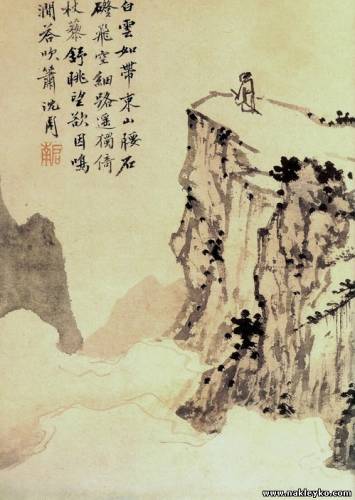 白雲如帶束山腰石
磴飛空細路遙獨倚
杖藜舒眺望欲因鳴
澗荅吹簫 沈周
www.nakleyko.com